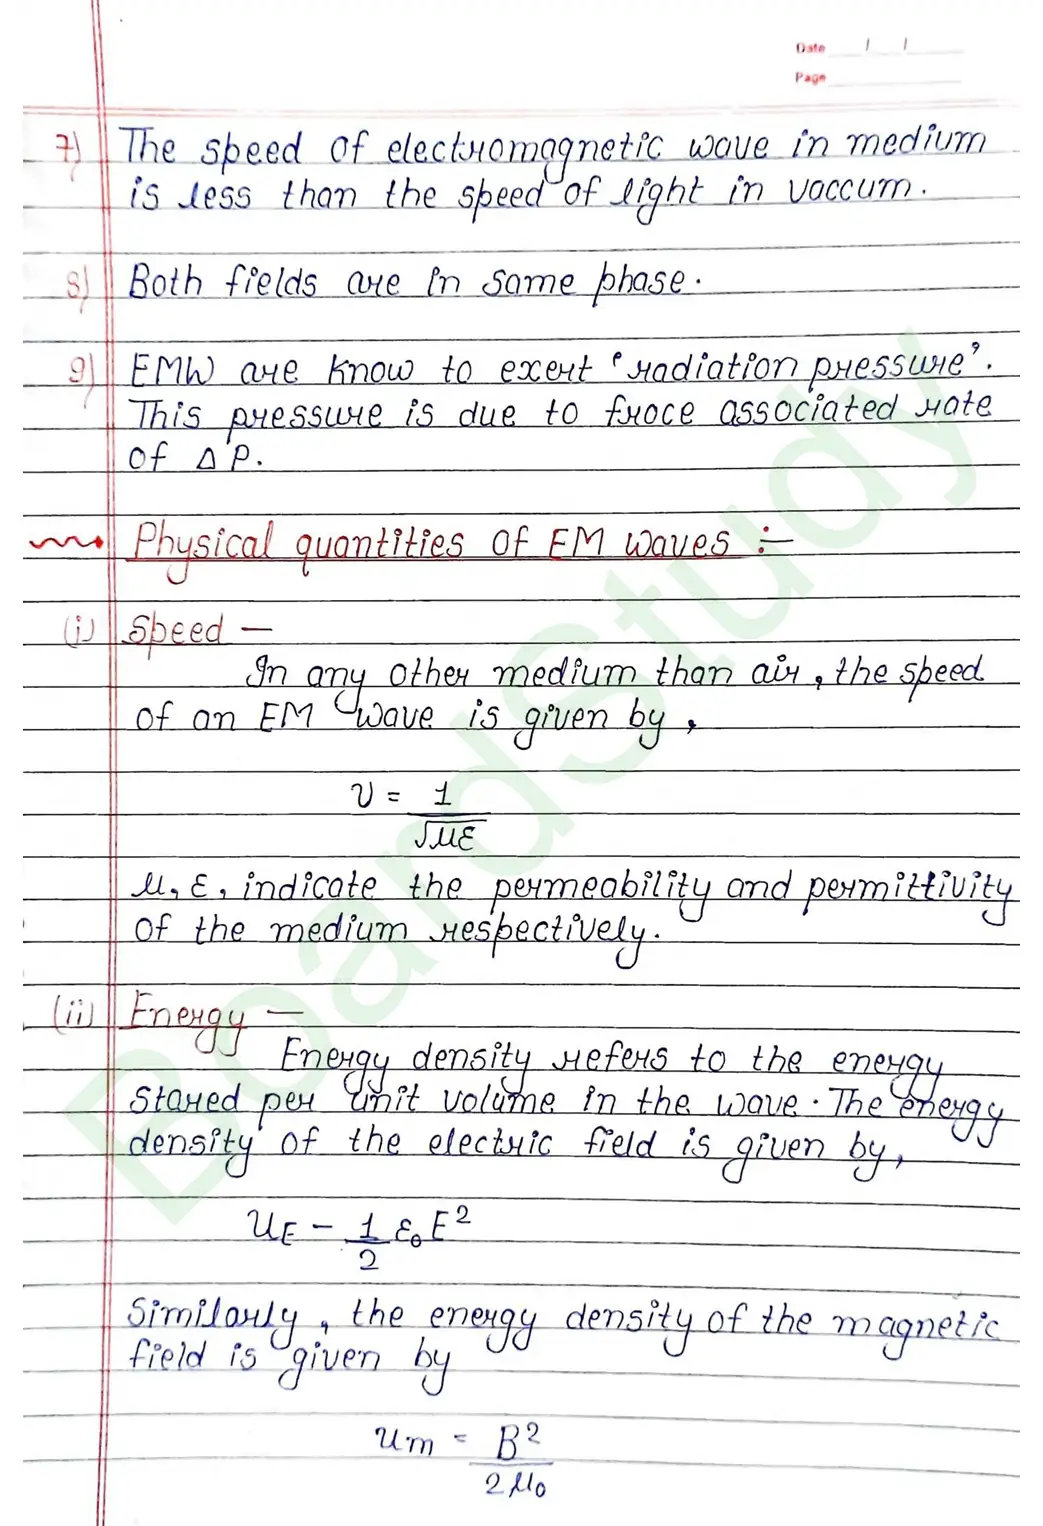 Date / /
Page
7) The speed of electromagnetic wave in medium
is less than the speed of light in vaccum.
8) Both fields are in same phase.
9) EMW are know to exert 'radiation pressure'.
This pressure is due to froce associated rate
of Δ P.
Physical quantities of EM waves :-
(i) Speed —
In any other medium than air, the speed
of an EM wave is given by,
v = 1
√με
μ, ε, indicate the permeability and permittivity
of the medium respectively.
(ii) Energy —
Energy density refers to the energy
stared per unit volume in the wave. The energy
density of the electric field is given by,
UE - 1/2 ε0 E²
Similarly, the energy density of the magnetic
field is given by
um = B²
2μ0
BoardStudy